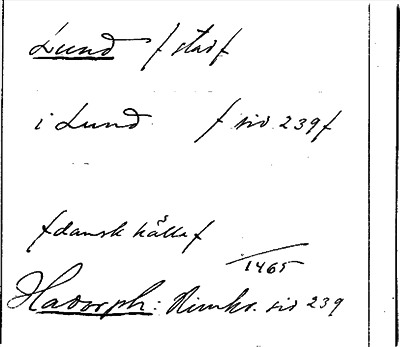 Lund / stad /
i Lund / sid 239 /
/ dansk källa /
1465
Hadorph: Rimkr. sid 239